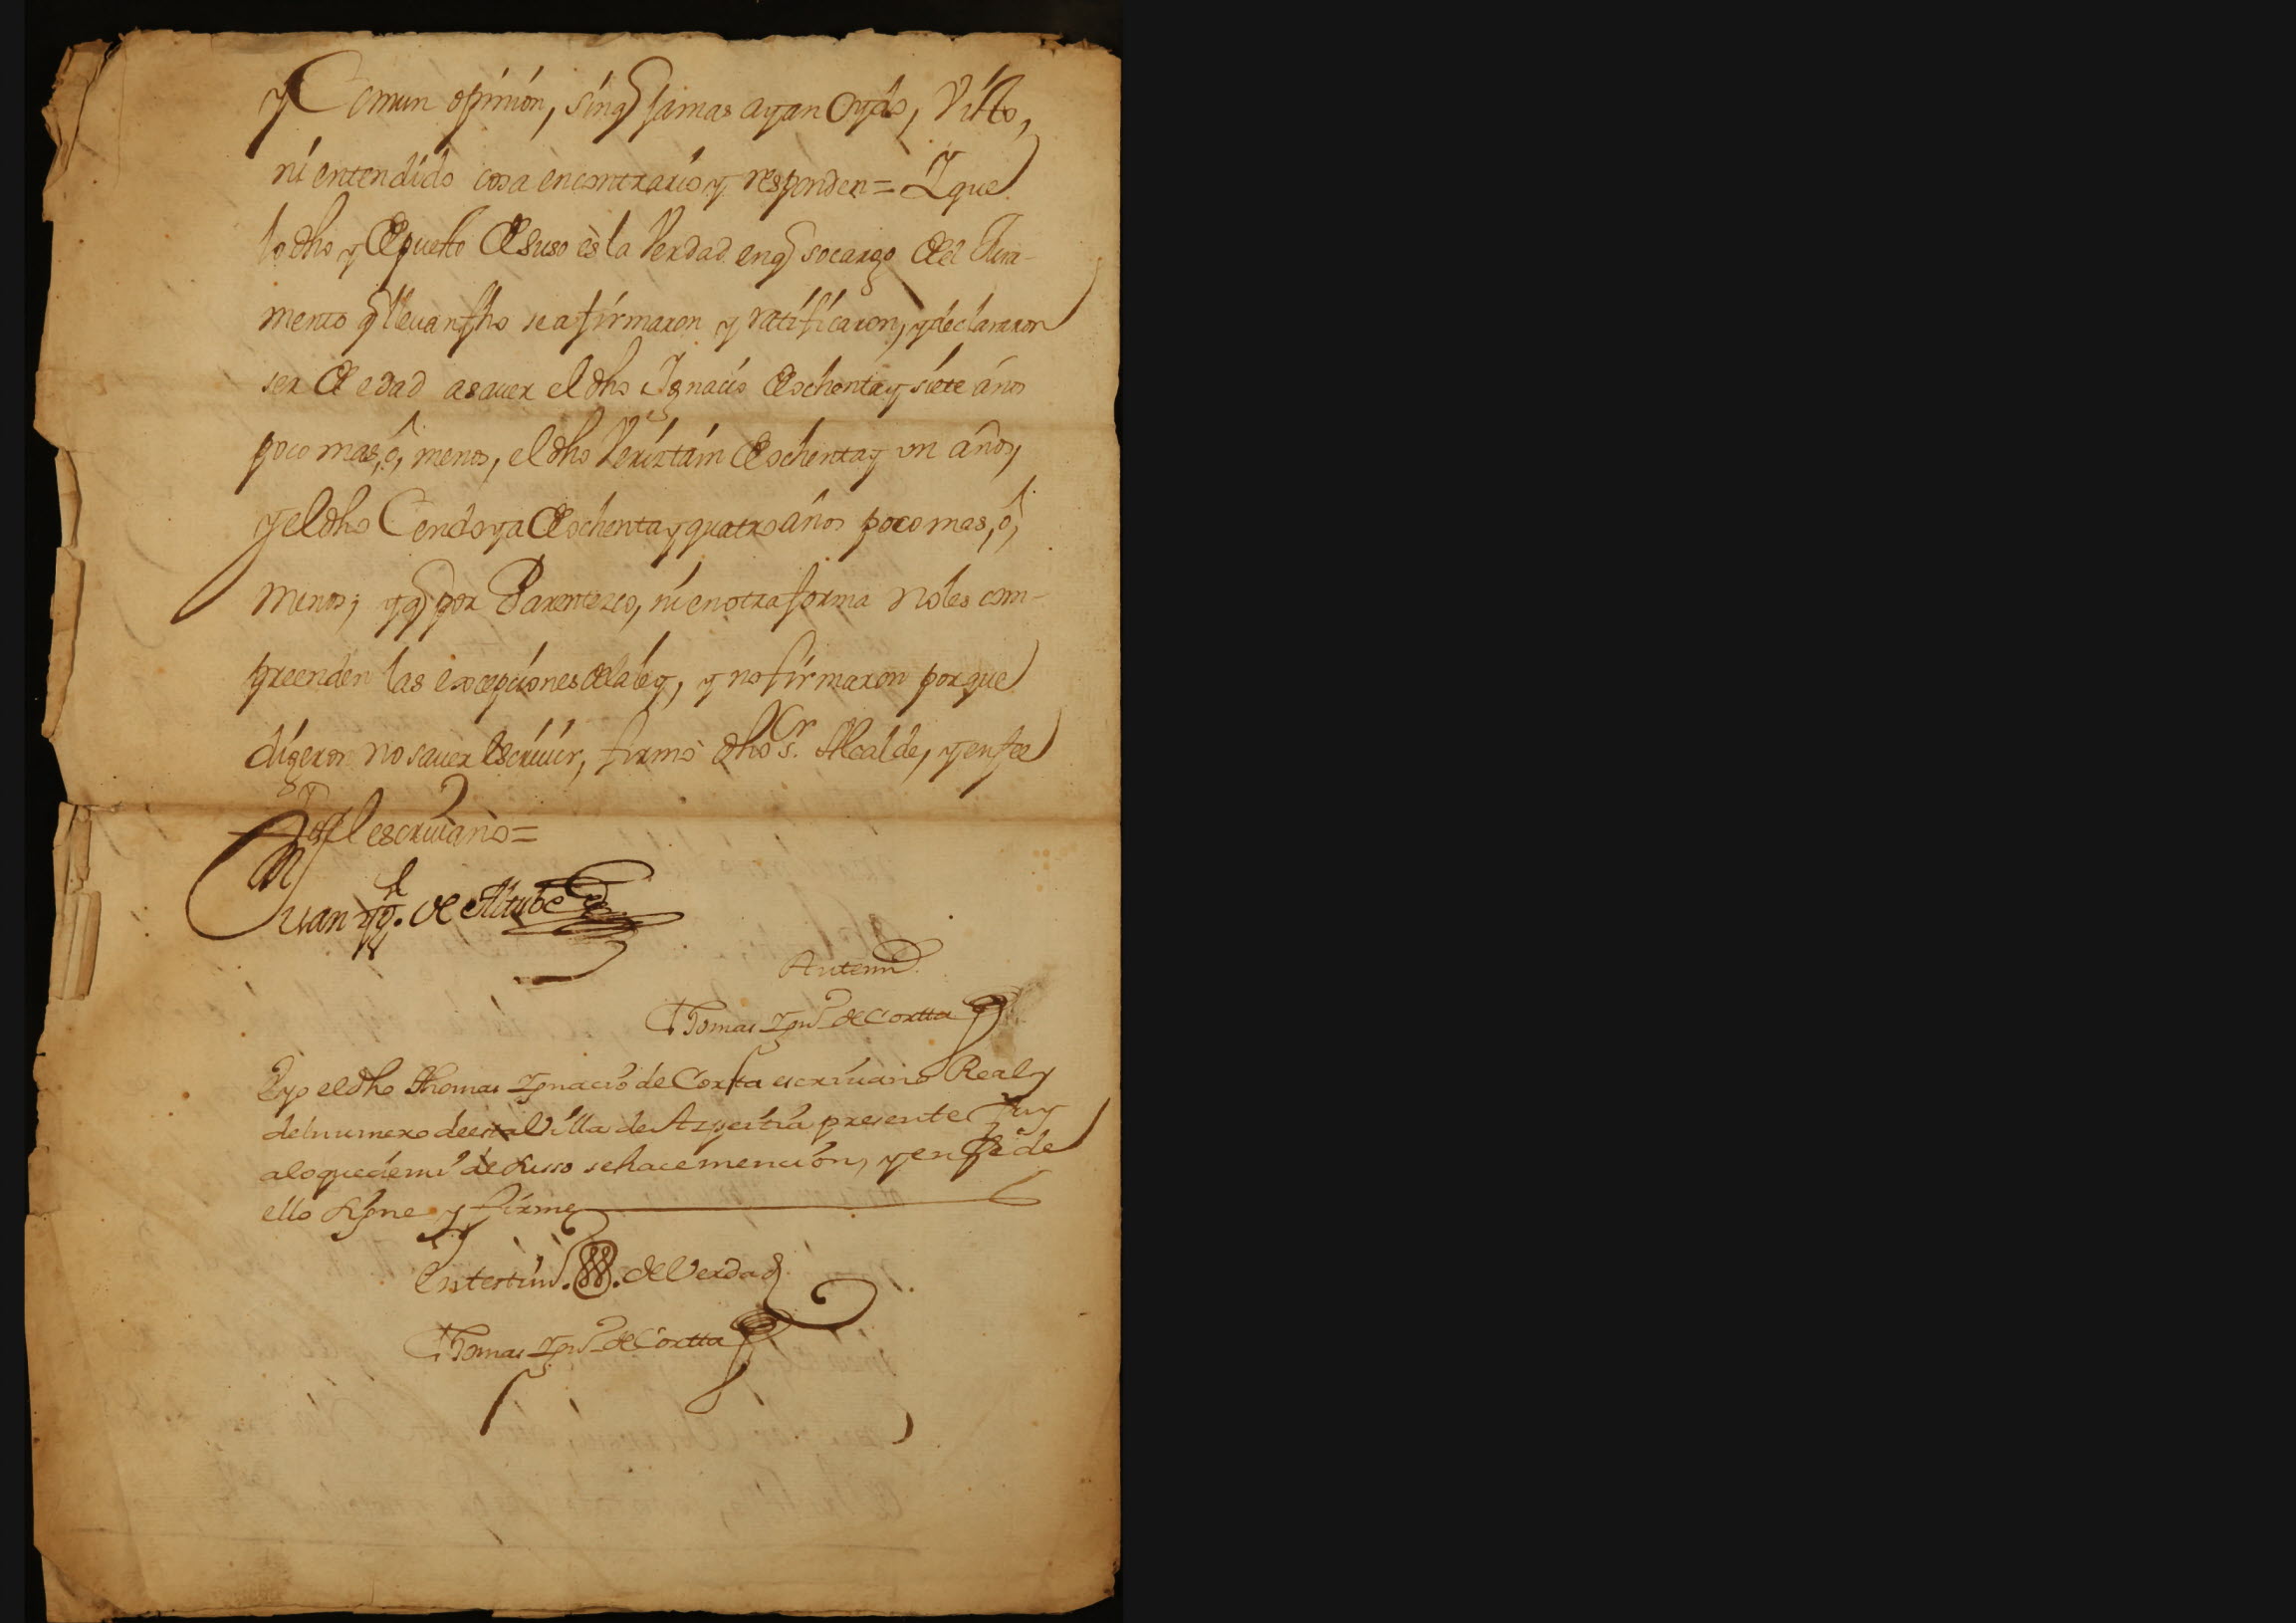 y Comun opinion, sinq jamas ayan Oydo, Visto,
ni entendido cosa encontrario y responden = Y que
lo dho y Depuesto Desuso es la Verdad enq socargo del Jura-
mento q llevan fho se afirmaron y ratificaron, y declararon
ser de edad asaver el dho Ignacio de ochenta y siete años
poco mas, ó, menos, el dho Veriztain de ochenta y un años,
y el dho Cendoya de ochenta y quatro años poco mas, ó,
menos; y q por Parentezco, ni en otra forma no les com-
preenden las excepciones de la ley, y no firmaron porque
digeron no saver escrivir, firmó dho Sr. Alcalde, y en fee
yo el escrivano =
Juan de Altube
Antemi
Thomas Ign.o de Cortta
E yo el dho Thomas Ignacio de Corta escrivano Real y
del numero de esta Villa de Azpeitia presente fuy
alo que de mi de suso se hace mencion, y en fe de
ello signe y firme
En testim.o de Verdad
Thomas Ign.o de Cortta